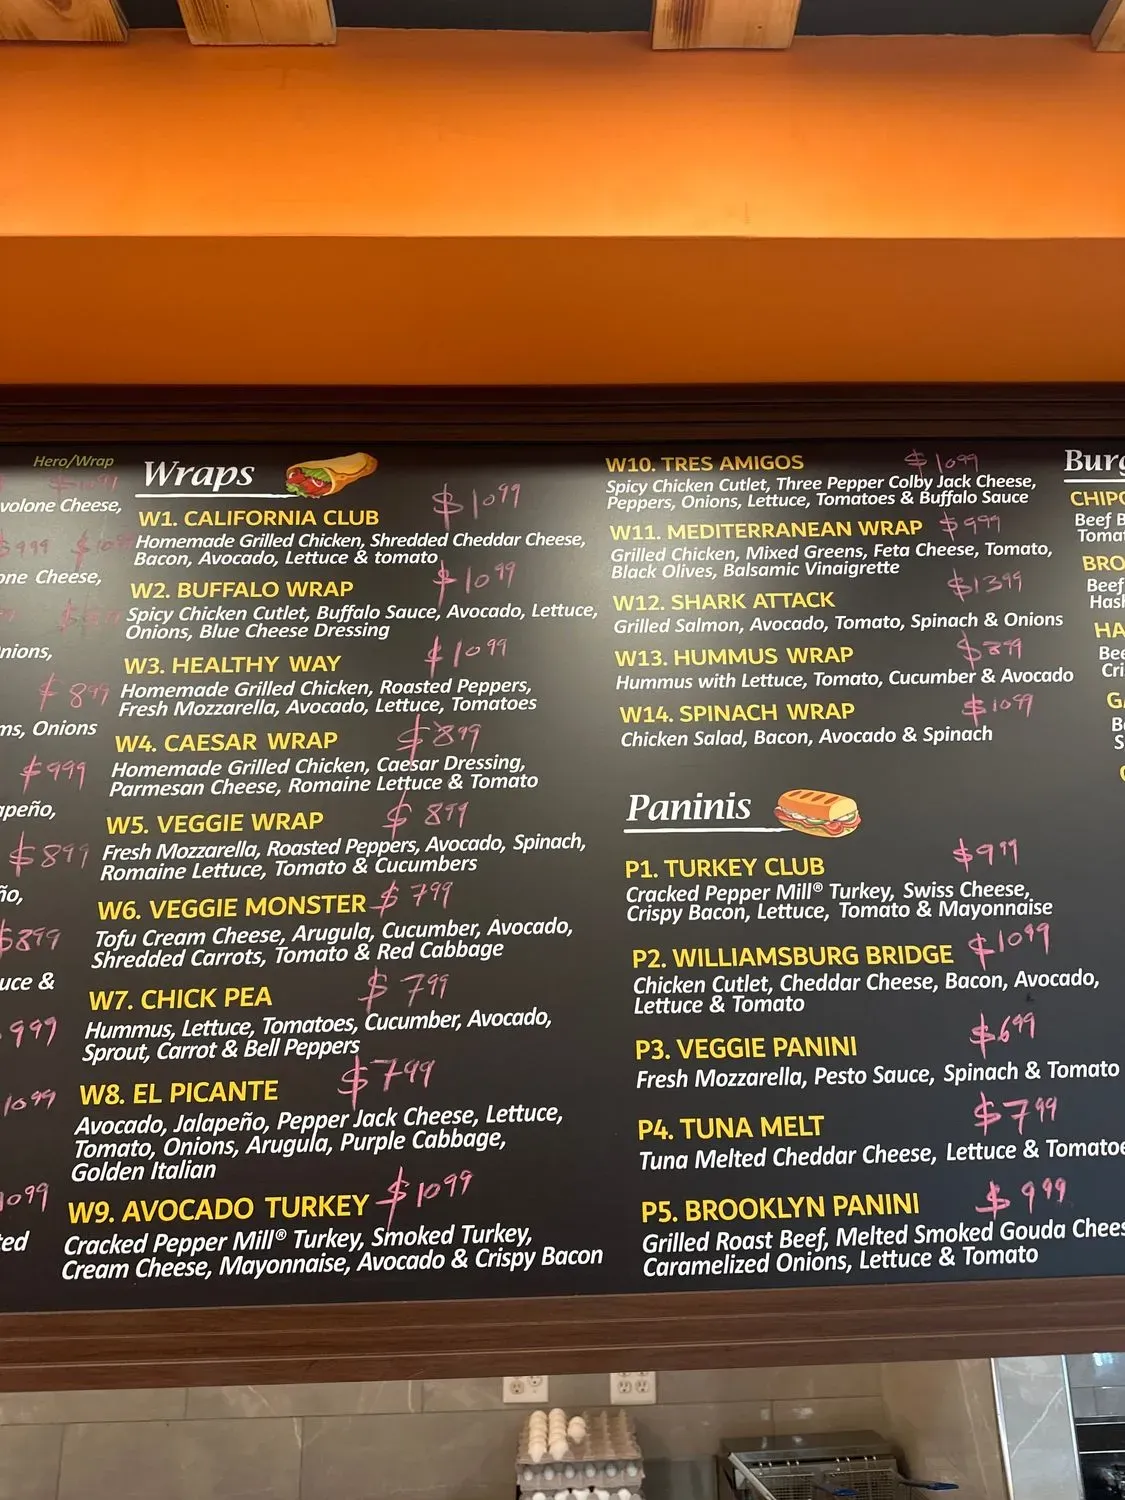 Hero/Wrap
$1099
volone Cheese,
$999 $10
one Cheese,
$8
nions,
$899
ms, Onions
$999
apeño,
$899
ño,
$899
uce &
999
1099
1099
ted
Wraps
W1. CALIFORNIA CLUB $1099
Homemade Grilled Chicken, Shredded Cheddar Cheese,
Bacon, Avocado, Lettuce & tomato
W2. BUFFALO WRAP $1099
Spicy Chicken Cutlet, Buffalo Sauce, Avocado, Lettuce,
Onions, Blue Cheese Dressing
W3. HEALTHY WAY $1099
Homemade Grilled Chicken, Roasted Peppers,
Fresh Mozzarella, Avocado, Lettuce, Tomatoes
W4. CAESAR WRAP $899
Homemade Grilled Chicken, Caesar Dressing,
Parmesan Cheese, Romaine Lettuce & Tomato
W5. VEGGIE WRAP $899
Fresh Mozzarella, Roasted Peppers, Avocado, Spinach,
Romaine Lettuce, Tomato & Cucumbers
W6. VEGGIE MONSTER $799
Tofu Cream Cheese, Arugula, Cucumber, Avocado,
Shredded Carrots, Tomato & Red Cabbage
W7. CHICK PEA $799
Hummus, Lettuce, Tomatoes, Cucumber, Avocado,
Sprout, Carrot & Bell Peppers
W8. EL PICANTE $799
Avocado, Jalapeño, Pepper Jack Cheese, Lettuce,
Tomato, Onions, Arugula, Purple Cabbage,
Golden Italian
W9. AVOCADO TURKEY $1099
Cracked Pepper Mill® Turkey, Smoked Turkey,
Cream Cheese, Mayonnaise, Avocado & Crispy Bacon
W10. TRES AMIGOS $1099
Spicy Chicken Cutlet, Three Pepper Colby Jack Cheese,
Peppers, Onions, Lettuce, Tomatoes & Buffalo Sauce
W11. MEDITERRANEAN WRAP $999
Grilled Chicken, Mixed Greens, Feta Cheese, Tomato,
Black Olives, Balsamic Vinaigrette
W12. SHARK ATTACK $1399
Grilled Salmon, Avocado, Tomato, Spinach & Onions
W13. HUMMUS WRAP $899
Hummus with Lettuce, Tomato, Cucumber & Avocado
W14. SPINACH WRAP $1099
Chicken Salad, Bacon, Avocado & Spinach
Paninis
P1. TURKEY CLUB $999
Cracked Pepper Mill® Turkey, Swiss Cheese,
Crispy Bacon, Lettuce, Tomato & Mayonnaise
P2. WILLIAMSBURG BRIDGE $1099
Chicken Cutlet, Cheddar Cheese, Bacon, Avocado,
Lettuce & Tomato
P3. VEGGIE PANINI $699
Fresh Mozzarella, Pesto Sauce, Spinach & Tomato
P4. TUNA MELT $799
Tuna Melted Cheddar Cheese, Lettuce & Tomatoe
P5. BROOKLYN PANINI $999
Grilled Roast Beef, Melted Smoked Gouda Chees
Caramelized Onions, Lettuce & Tomato
Burg
CHIPO
Beef B
Tomat
BRO
Beef
Hash
HA
Bee
Cri
GA
B
S